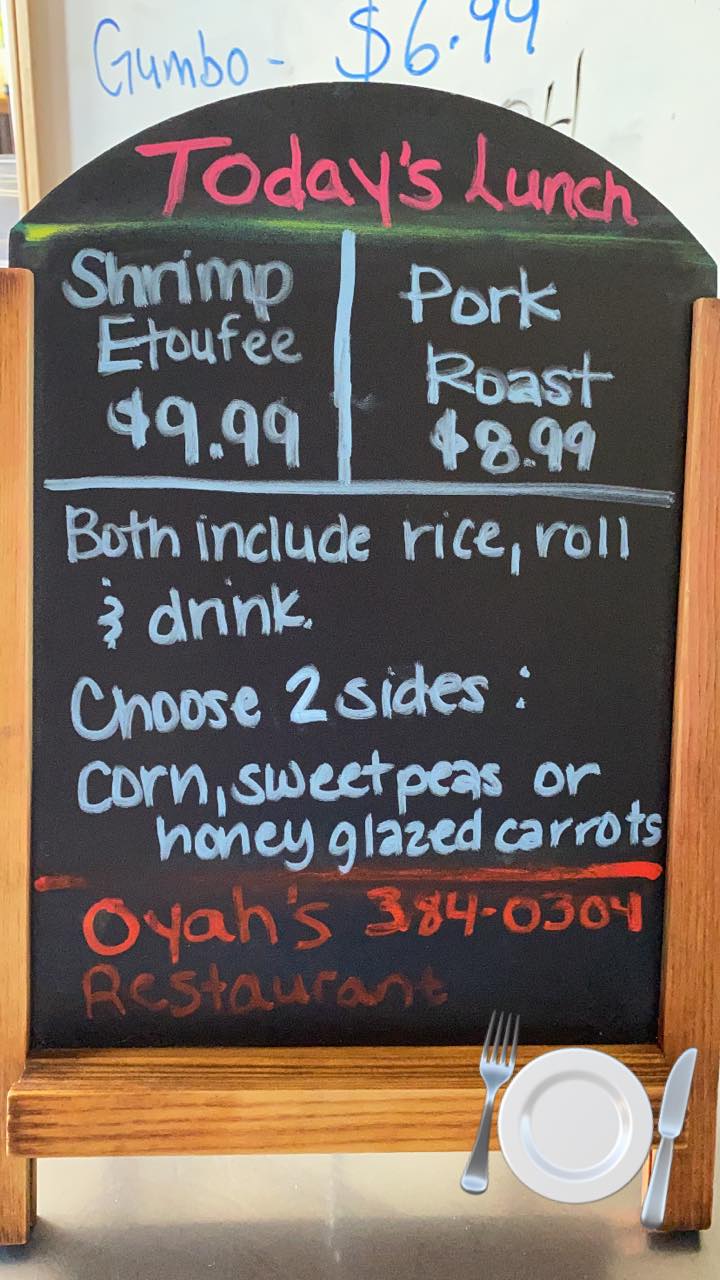 Gumbo - $6.99
Today's Lunch
Shrimp
Etoufee
$9.99
Pork
Roast
$8.99
Both include rice, roll
& drink.
Choose 2 sides :
Corn, sweet peas or
honey glazed carrots
Oyah's 384-0304
Restaurant